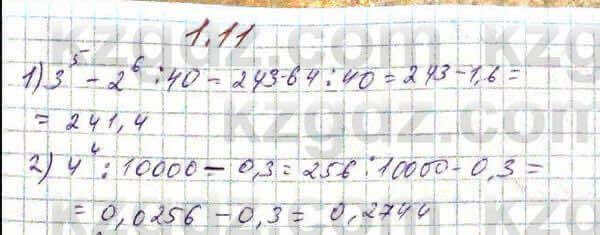 1.11
1) 3⁵ - 2⁶ : 40 = 243-64 : 40 = 243-1,6 =
= 241,4
2) 4⁴ : 10000 - 0,3 = 256 : 10000 - 0,3 =
= 0,0256 - 0,3 = 0,2744
kzgdz.com